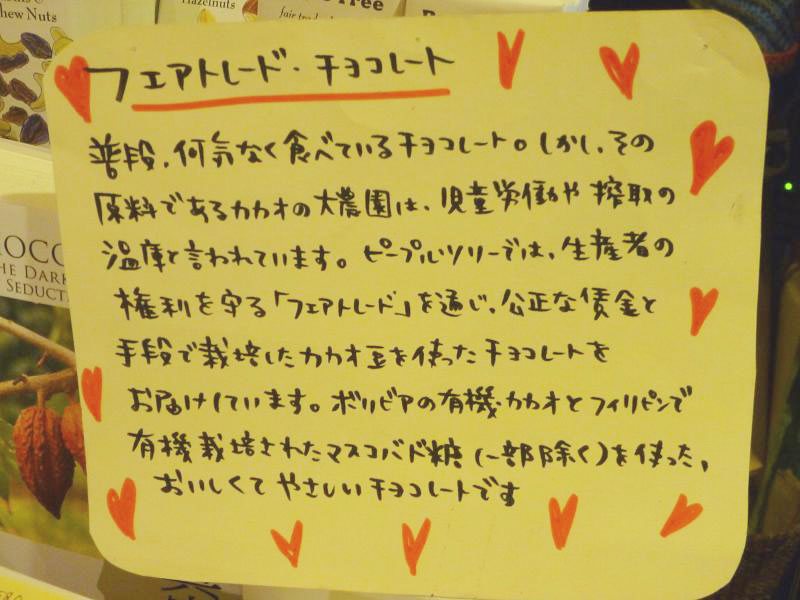 hew Nuts
Hazelnuts
fair trade
Tree
フェアトレード・チョコレート
普段、何気なく食べているチョコレート。しかし、その
原料であるカカオの大農園は、児童労働や搾取の
温庫と言われています。ピープルツリーでは、生産者の
権利を守る「フェアトレード」を通じ、公正な賃金と
手段で栽培したカカオ豆を使ったチョコレートを
お届けしています。ボリビアの有機・カカオとフィリピンで
有機栽培されたマスコバド糖(一部除く)を使った、
おいしくてやさしいチョコレートです
OCC
HE DARK
SEDUCT